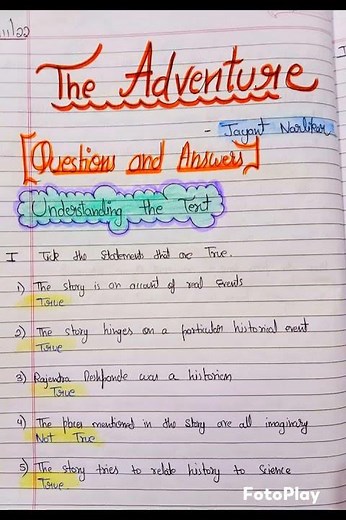 11/22
The Adventure
- Jayant Narlikar
[Questions and Answers]
Understanding the Text
I Tick the statements that are True.
1) The story is an account of real events
True
2) The story hinges on a particular historical event
True
3) Rajendra Deshpande was a historian
True
4) The places mentioned in the story are all imaginary
Not True
5) The story tries to relate history to Science
True
FotoPlay